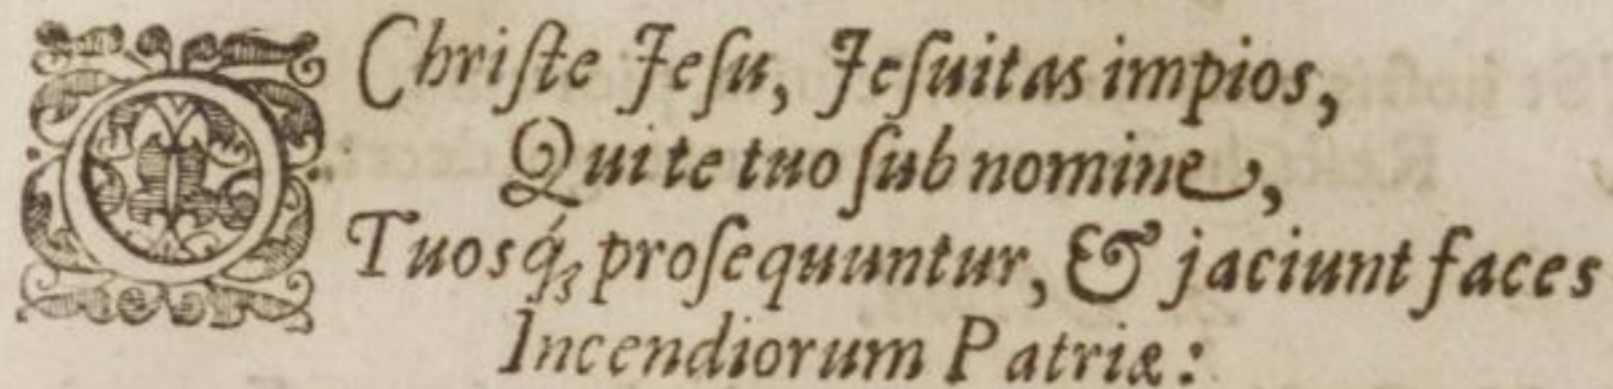 O Chriſte Jeſu, Jeſuitas impios,
Qui te tuo ſub nomine,
Tuosq́ꝫ proſequuntur, & jaciunt faces
Incendiorum Patriæ: